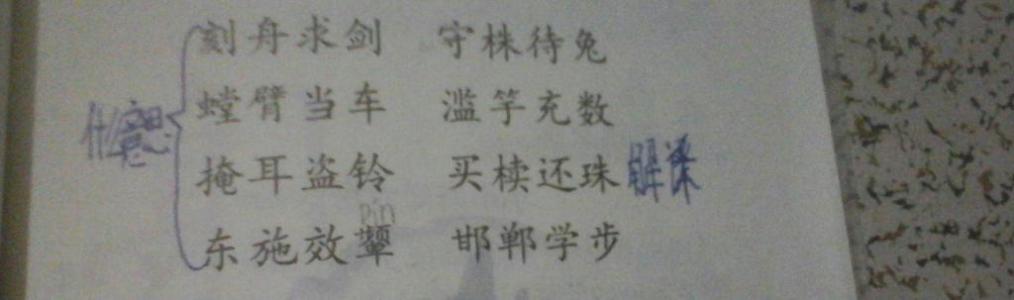 刻舟求剑 守株待兔
螳臂当车 滥竽充数
什么意思
掩耳盗铃 买椟还珠 解释
pín
东施效颦 邯郸学步